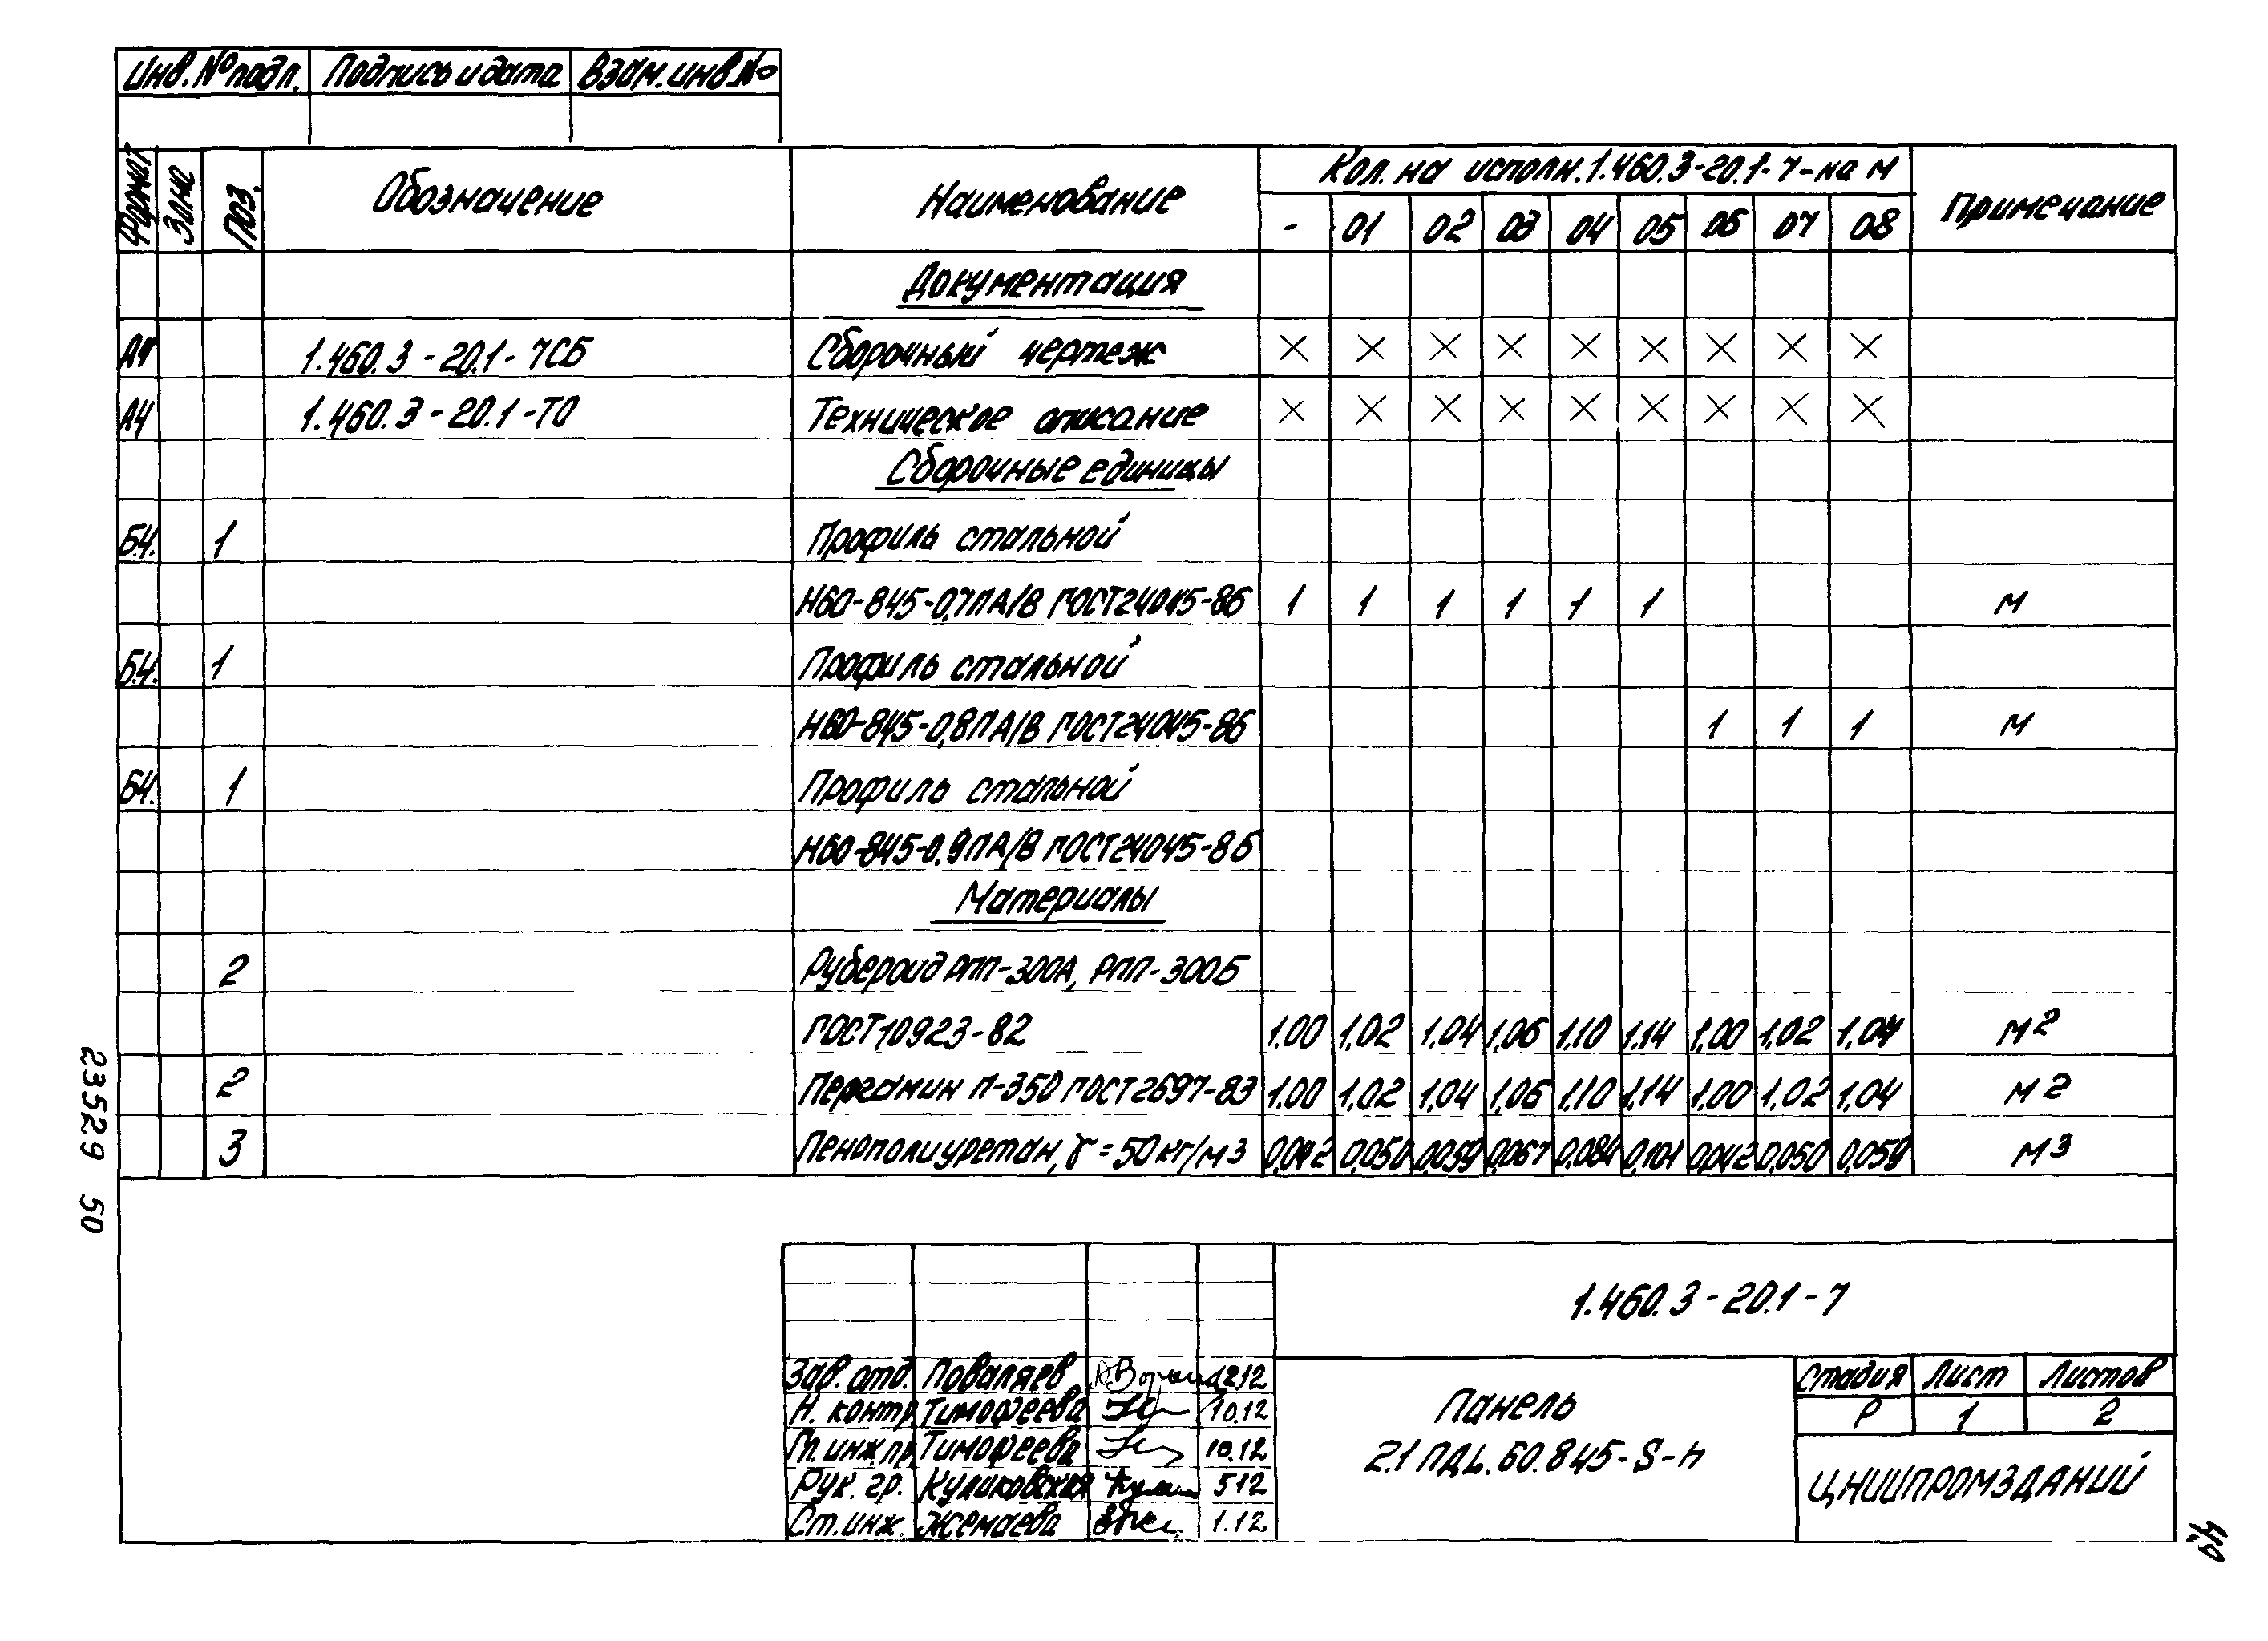 Инв. № подл. Подпись и дата Взам. инв. №
Формат Зона Поз. Обозначение Наименование Кол. на исполн. 1.460.3-20.1-7-на м Примечание
- 01 02 03 04 05 06 07 08
Документация
А4 1.460.3-20.1-7СБ Сборочный чертеж × × × × × × × × ×
А4 1.460.3-20.1-ТО Техническое описание × × × × × × × × ×
Сборочные единицы
Б.ч. 1 Профиль стальной
Н60-845-0,7ПА/В ГОСТ24045-86 1 1 1 1 1 1 м
Б.ч. 1 Профиль стальной
Н60-845-0,8ПА/В ГОСТ24045-86 1 1 1 м
Бч. 1 Профиль стальной
Н60-845-0,9ПА/В ГОСТ24045-86
Материалы
2 Рубероид РПП-300А, РПП-300Б
ГОСТ10923-82 1.00 1,02 1,04 1,06 1.10 1.14 1,00 1,02 1,04 м2
2 Пергамин П-350 ГОСТ2697-83 1.00 1,02 1,04 1,06 1,10 1,14 1,00 1,02 1,04 м2
3 Пенополиуретан, γ=50кг/м3 0,042 0,050 0,059 0,067 0,084 0,101 0,042 0,050 0,059 м3
23529 50
1.460.3-20.1-7
Зав. отд. Поваляев 12.12
Н. контр. Тимофеева 10.12
Гл. инж. пр. Тимофеева 10.12
Рук. гр. Куликовская 5.12
Ст. инж. Жемаева 1.12
Панель
2.1 ПДL.60.845-S-h
Стадия Лист Листов
Р 1 2
ЦНИИПРОМЗДАНИЙ
49